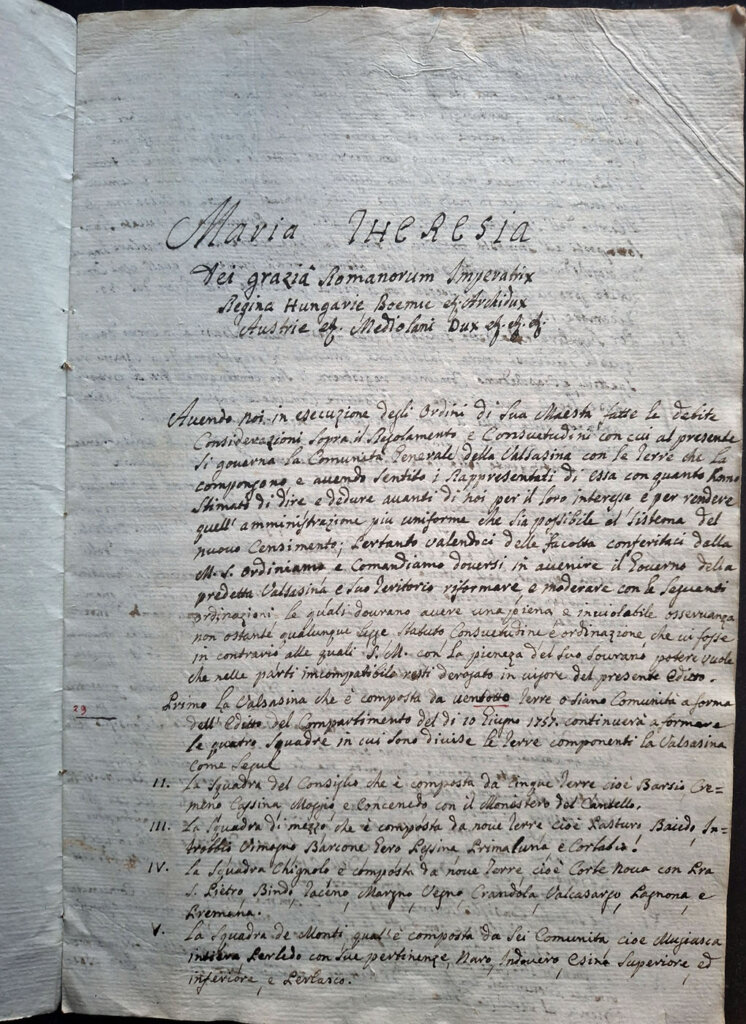 Maria THERESIA
Dei graziâ Romanorum Imperatrix
Regina Hungarie Boemie & Archidux
Austrie &. Mediolani Dux &. &. &.
Avendo noi in esecuzione degli Ordini di Sua Maestà fatte le debite
Considerazioni sopra il Regolamento e Consuetudini con cui al presente
si governa la Comunità Generale della Valsasina con le Terre che la
compongono e avendo sentito i Rappresentati di essa con quanto hanno
stimato di dire e dedure avanti di noi per il loro interesse e per rendere
quell'amministrazione più uniforme che sia possibile al sistema del
nuovo Censimento; Pertanto valendoci delle facoltà conferiteci dalla
M. S. Ordiniamo e Comandiamo doversi in avvenire il Governo della
predetta Valsasina e suo Teritorio riformare, e moderare con le seguenti
ordinazioni, le quali dovrano avere una piena e inviolabile osservanza
non ostante qualunque legge Statuto Consuetudine e ordinazione che vi fosse
in contrario alle quali S. M. con la pieneza del suo sovrano potere vuole
che nelle parti incompatibili resti derogato in vigore del presente Editto.
29
Primo La Valsasina che è composta da ventotto Terre o siano Comunità a forma
dell'Editto del Compartimento del di 10 Giugno 1757. continuerà a formare
le quatro squadre in cui sono divise le Terre componenti la Valsasina
come segue
II. La Squadra del Consiglio che è composta da Cinque Terre cioè Barsio Cre=
meno Cassina Moggio e Concenedo con il Monistero del Cantello.
III. La Squadra di mezzo che è composta da nove Terre cioè Pasturo Baiedo, In=
trobbio Vimogno Barcone Gero Pessina Primaluna e Cortabio.
IV. La Squadra Chignolo è composta da nove Terre, cioè Corte Nova con Pra
S. Pietro, Bindo, Taceno, Margno, Vegno, Crandola, Valcasargo, Pagnona, e
Premana.
V. La Squadra de Monti qual'è composta da Sei Comunità cioè Mugiasca
intiera Perledo con sue pertinenze, Naro, Indovero, Esino Superiore, ed
inferiore, e Perlasco.